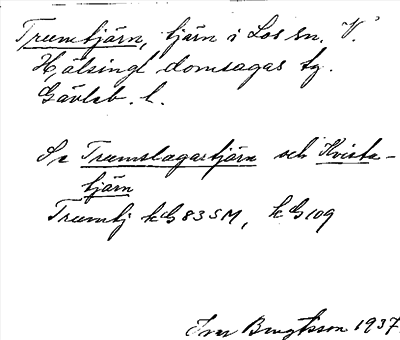 Trumtjärn, tjärn i Los sn. V.
Hälsingl domsagas tg.
Gävleb. l.
Se Trumslagartjärn och Kvista-
tjärn
Trumtj kG83SM, kG109
Ivar Bengtsson 1937